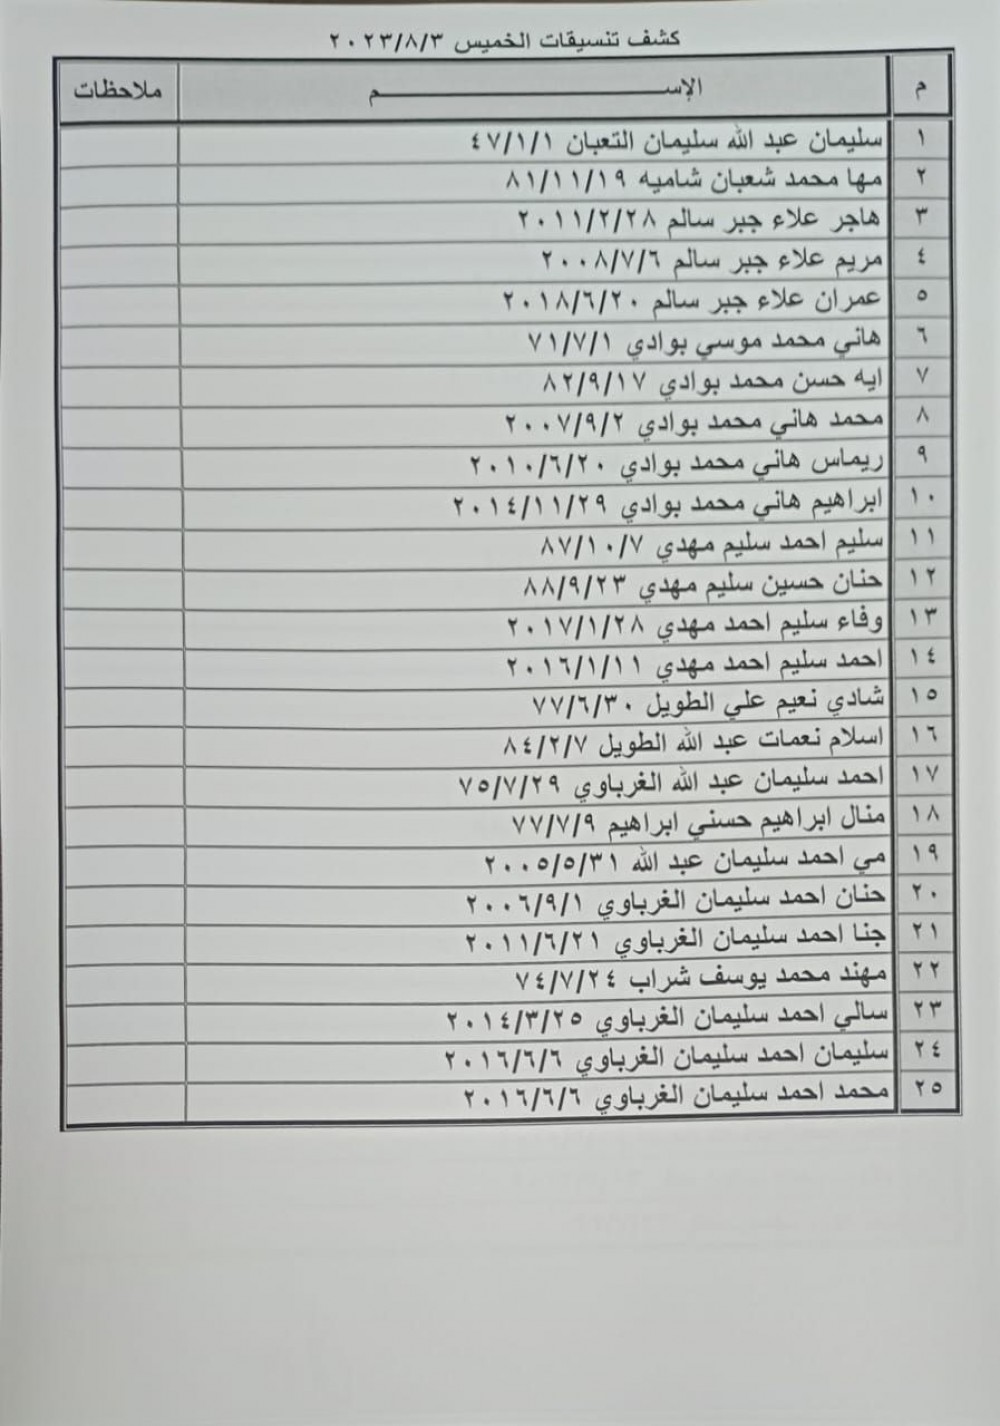 كشف تنسيقات الخميس ٢٠٢٣/٨/٣
م الإســـــم ملاحظات
١ سليمان عبد الله سليمان التعبان ٤٧/١/١
٢ مها محمد شعبان شاميه ٨١/١١/١٩
٣ هاجر علاء جبر سالم ٢٠١١/٢/٢٨
٤ مريم علاء جبر سالم ٢٠٠٨/٧/٦
٥ عمران علاء جبر سالم ٢٠١٨/٦/٢٠
٦ هاني محمد موسي بوادي ٧١/٧/١
٧ ايه حسن محمد بوادي ٨٢/٩/١٧
٨ محمد هاني محمد بوادي ٢٠٠٧/٩/٢
٩ ريماس هاني محمد بوادي ٢٠١٠/٦/٢٠
١٠ ابراهيم هاني محمد بوادي ٢٠١٤/١١/٢٩
١١ سليم احمد سليم مهدي ٨٧/١٠/٧
١٢ حنان حسين سليم مهدي ٨٨/٩/٢٣
١٣ وفاء سليم احمد مهدي ٢٠١٧/١/٢٨
١٤ احمد سليم احمد مهدي ٢٠١٦/١/١١
١٥ شادي نعيم علي الطويل ٧٧/٦/٣٠
١٦ اسلام نعمات عبد الله الطويل ٨٤/٢/٧
١٧ احمد سليمان عبد الله الغرباوي ٧٥/٧/٢٩
١٨ منال ابراهيم حسني ابراهيم ٧٧/٧/٩
١٩ مي احمد سليمان عبد الله ٢٠٠٥/٥/٣١
٢٠ حنان احمد سليمان الغرباوي ٢٠٠٦/٩/١
٢١ جنا احمد سليمان الغرباوي ٢٠١١/٦/٢١
٢٢ مهند محمد يوسف شراب ٧٤/٧/٢٤
٢٣ سالي احمد سليمان الغرباوي ٢٠١٤/٣/٢٥
٢٤ سليمان احمد سليمان الغرباوي ٢٠١٦/٦/٦
٢٥ محمد احمد سليمان الغرباوي ٢٠١٦/٦/٦